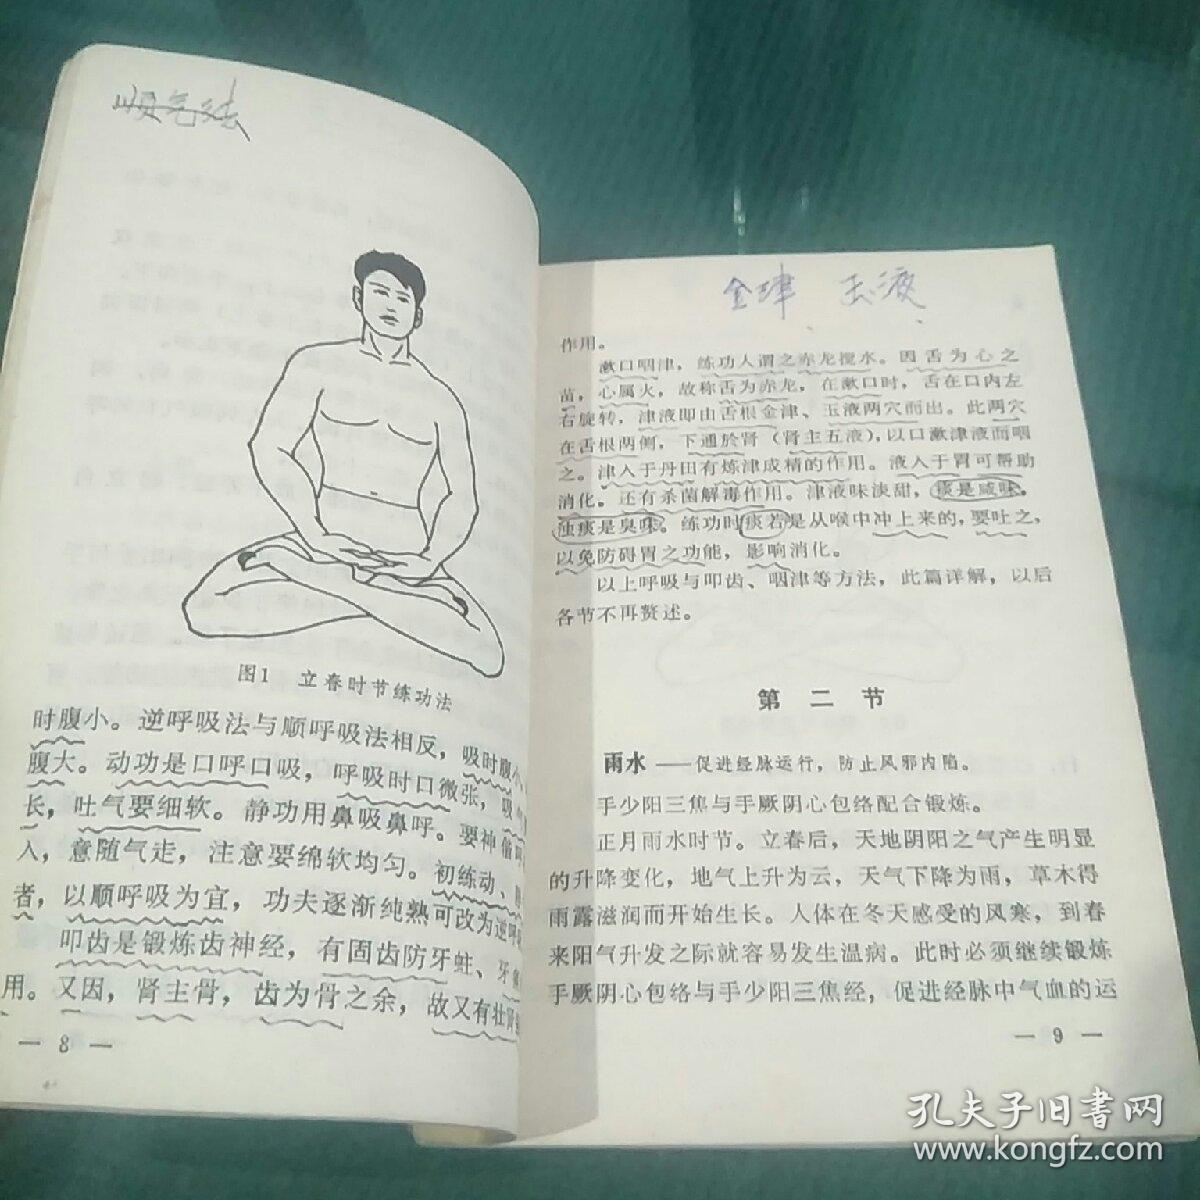 顺气法
图1 立春时节练功法
时腹小。逆呼吸法与顺呼吸法相反，吸时腹小
腹大。动功是口呼口吸，呼吸时口微张，吸
长，吐气要细软。静功用鼻吸鼻呼。要神
入，意随气走，注意要绵软均匀。初练动、
者，以顺呼吸为宜，功夫逐渐纯熟可改为逆呼
叩齿是锻炼齿神经，有固齿防牙蛀、牙
用。又因，肾主骨，齿为骨之余，故又有壮肾
— 8 —
金津 玉液
作用。
漱口咽津，练功人谓之赤龙搅水。因舌为心之
苗，心属火，故称舌为赤龙，在漱口时，舌在口内左
右旋转，津液即由舌根金津、玉液两穴而出。此两穴
在舌根两侧，下通於肾（肾主五液），以口漱津液而咽
之。津入于丹田有炼津成精的作用。液入于胃可帮助
消化。还有杀菌解毒作用。津液味淡甜，痰是咸味。
浊痰是臭味。练功时痰若是从喉中冲上来的，要吐之，
以免防碍胃之功能，影响消化。
以上呼吸与叩齿、咽津等方法，此篇详解，以后
各节不再赘述。
第二节
雨水——促进经脉运行，防止风邪内陷。
手少阳三焦与手厥阴心包络配合锻炼。
正月雨水时节。立春后，天地阴阳之气产生明显
的升降变化，地气上升为云，天气下降为雨，草木得
雨露滋润而开始生长。人体在冬天感受的风寒，到春
来阳气升发之际就容易发生温病。此时必须继续锻炼
手厥阴心包络与手少阳三焦经，促进经脉中气血的运
— 9 —
孔夫子旧书网
www.kongfz.com